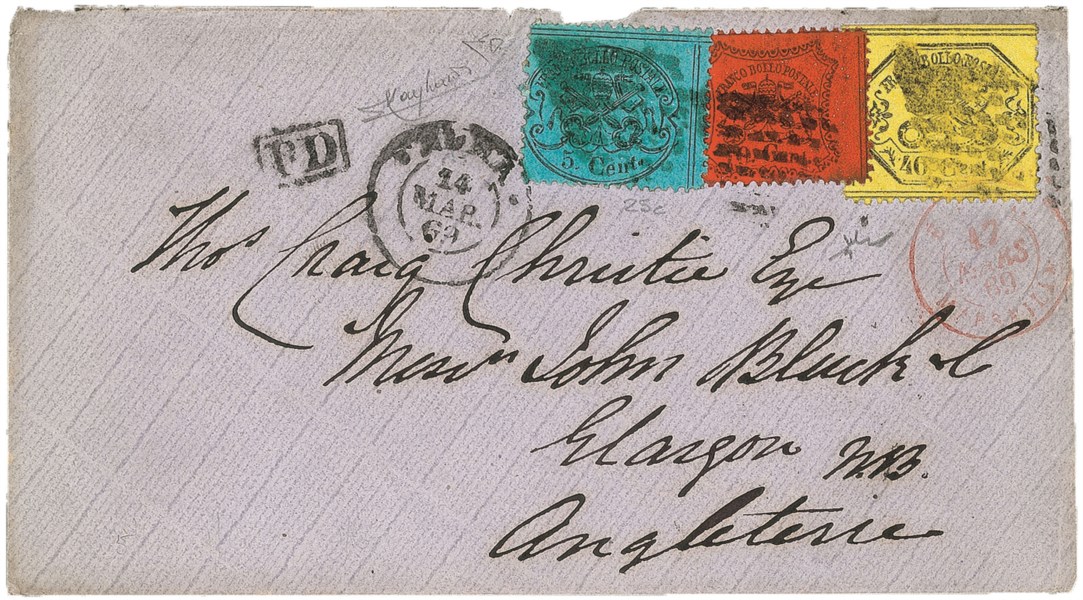 FRANCO BOLLO POSTALE
5 Cent.
FRANCO BOLLO POSTALE
Cent.
FRANCO BOLLO POSTALE
40 Cent.
PD
14
MAR.
69
25c
17
MARS
69
Thos Craig Christie Esqe
Messrs John Black & C
Glasgow N.B.
Angleterre